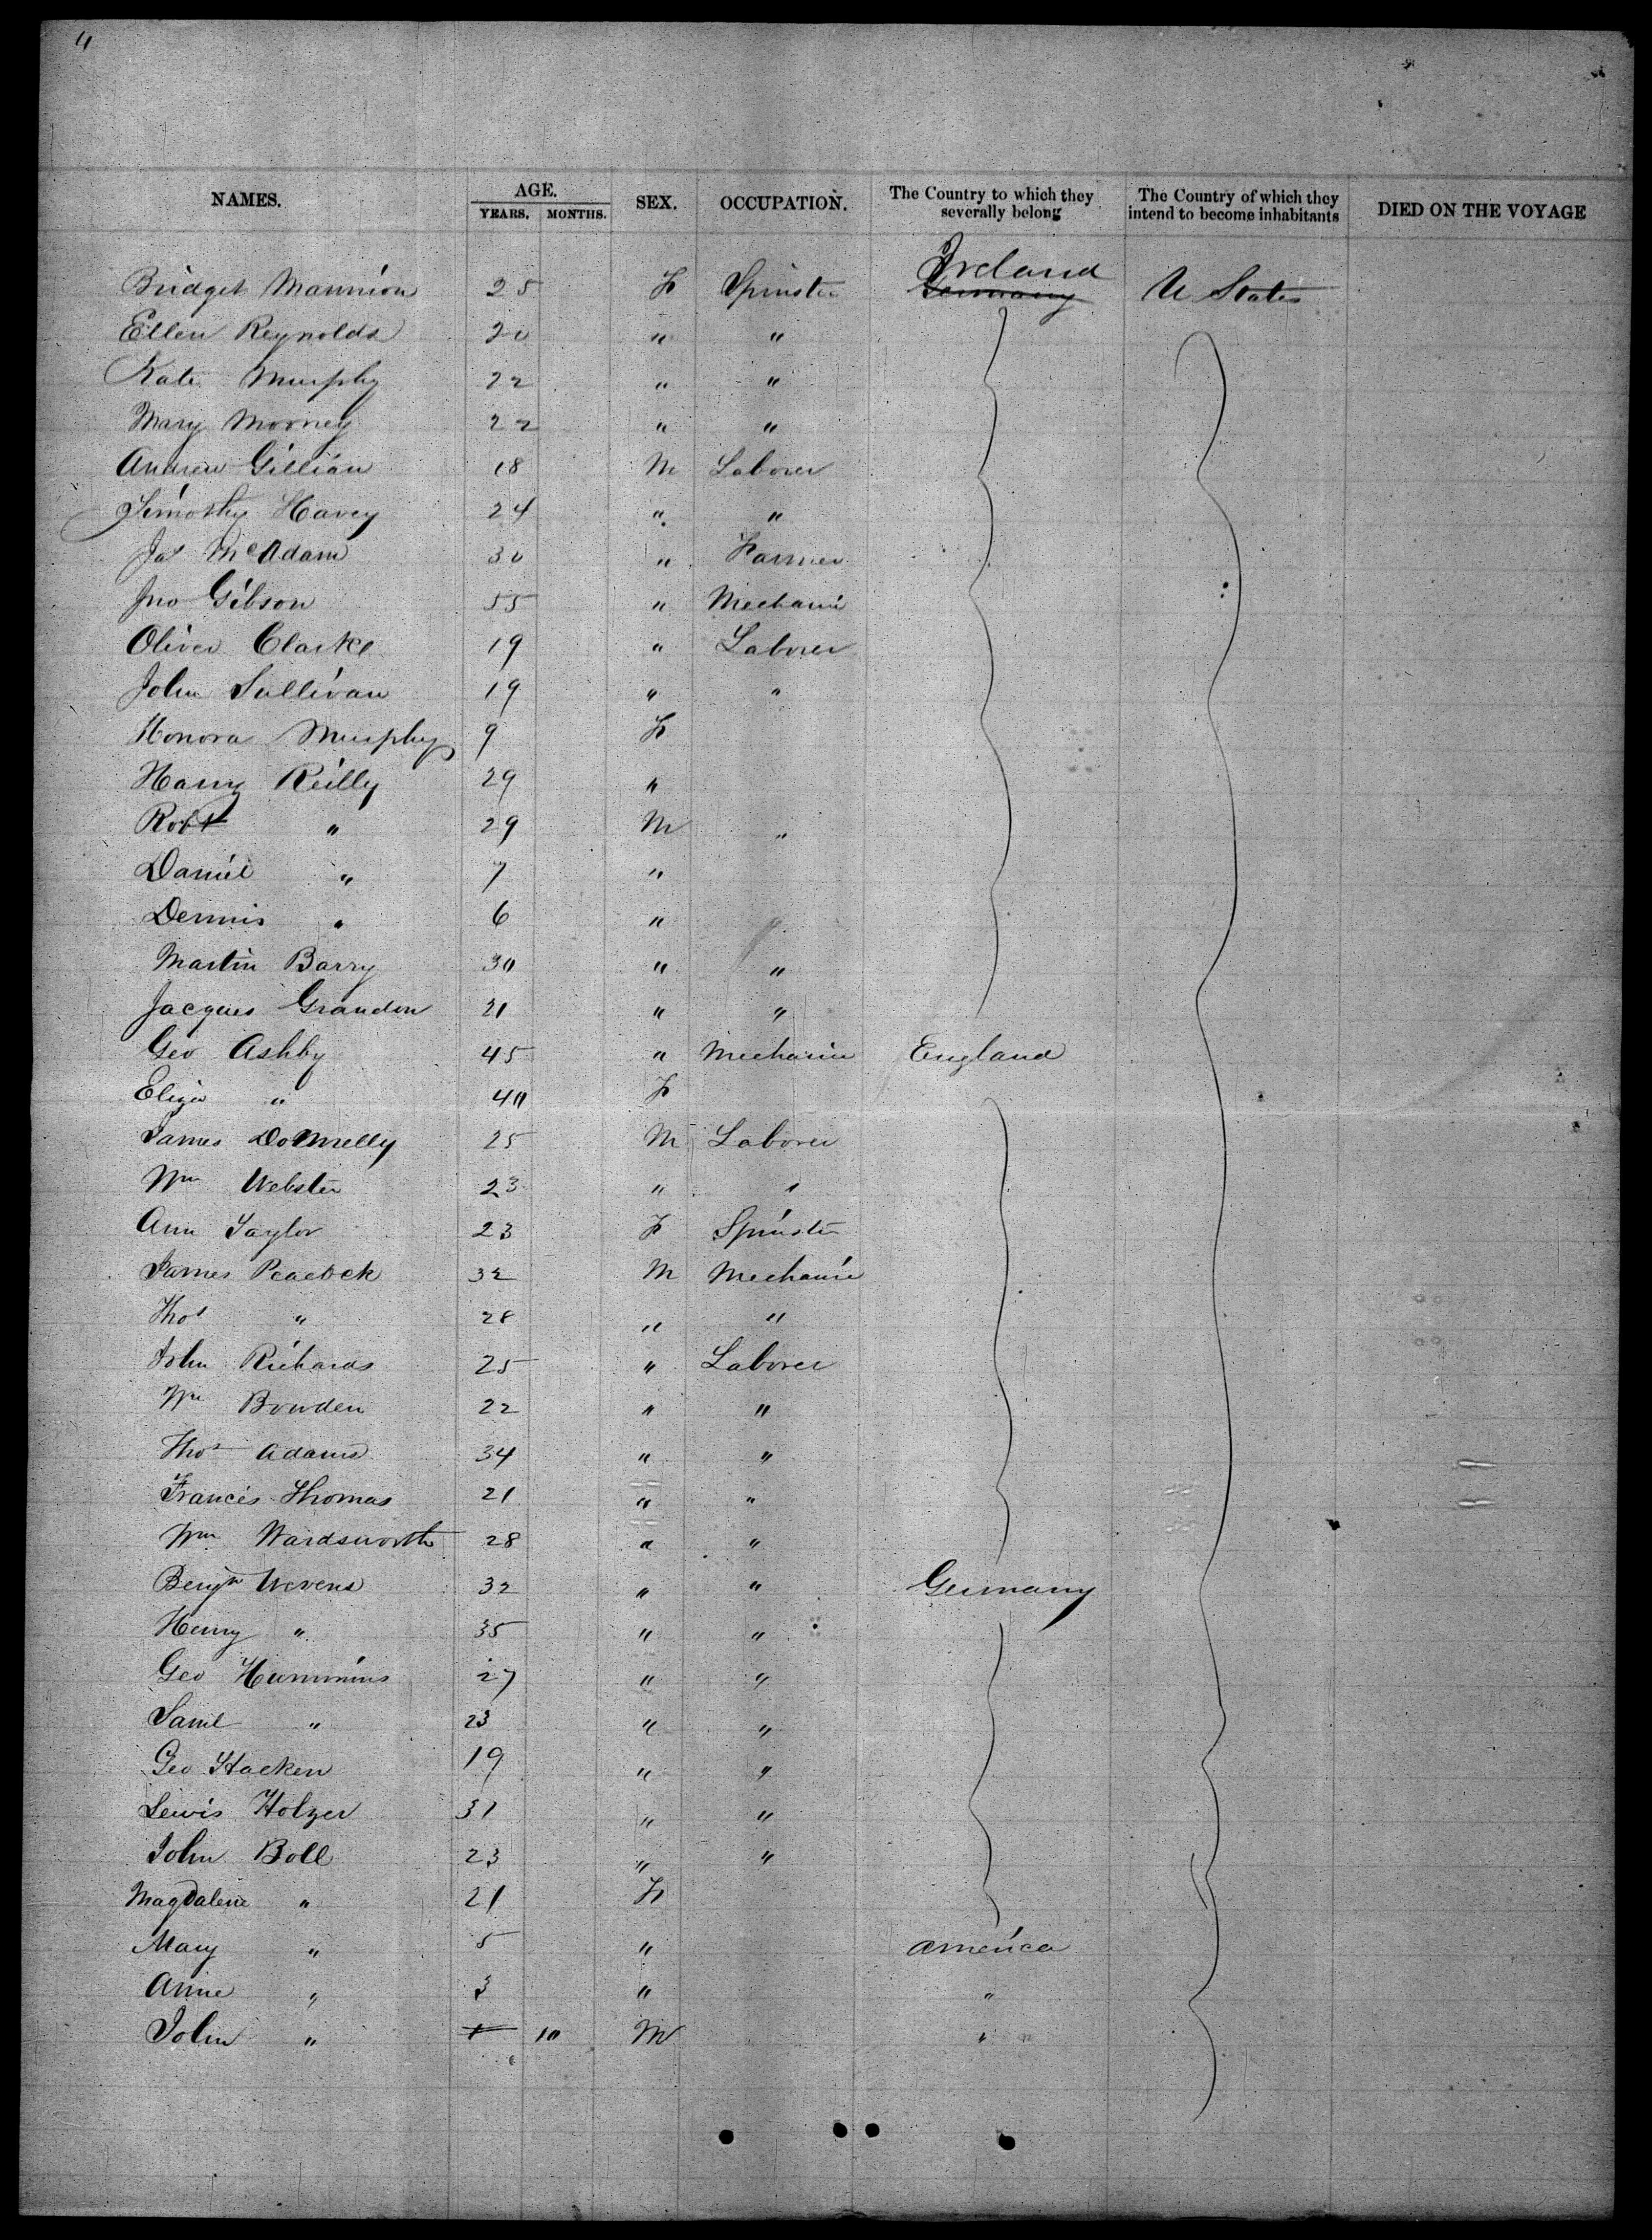 4
NAMES. AGE. SEX. OCCUPATION. The Country to which they severally belong The Country of which they intend to become inhabitants DIED ON THE VOYAGE
YEARS. MONTHS.
Ireland
Bridget Mannion 25 F Spinster Germany U States
Ellen Reynolds 20 " "
Kate Murphy 22 " "
Mary Mooney 22 " "
Andrew Gillian 18 M Laborer
Timothy Havey 24 " "
Jas McAdam 30 " Farmer
Jno Gibson 55 " Mechanic
Oliver Clarke 19 " Laborer
John Sullivan 19 " "
Honora Murphy 9 F
Harry Reilly 29 "
Robt " 29 M "
Daniel " 7 "
Dennis " 6 "
Martin Barry 30 " "
Jacques Grandon 21 " "
Geo Ashby 45 " Mechanic England
Eliza " 40 F
James Donnelly 25 M Laborer
Wm Webster 23 " "
Ann Taylor 23 F Spinster
James Peacock 32 M Mechanic
Thos " 28 " "
John Richards 25 " Laborer
Wm Bowden 22 " "
Thos Adams 34 " "
Francis Thomas 21 " "
Wm Wardsworth 28 " "
Benjn Wevens 32 " " Germany
Henry " 35 " "
Geo Hummins 27 " "
Saml " 23 " "
Geo Hacken 19 " "
Lewis Holzer 31 " "
John Boll 23 " "
Magdalene " 21 F
Mary " 5 " America
Anne " 3 " "
John " 1 10 M "